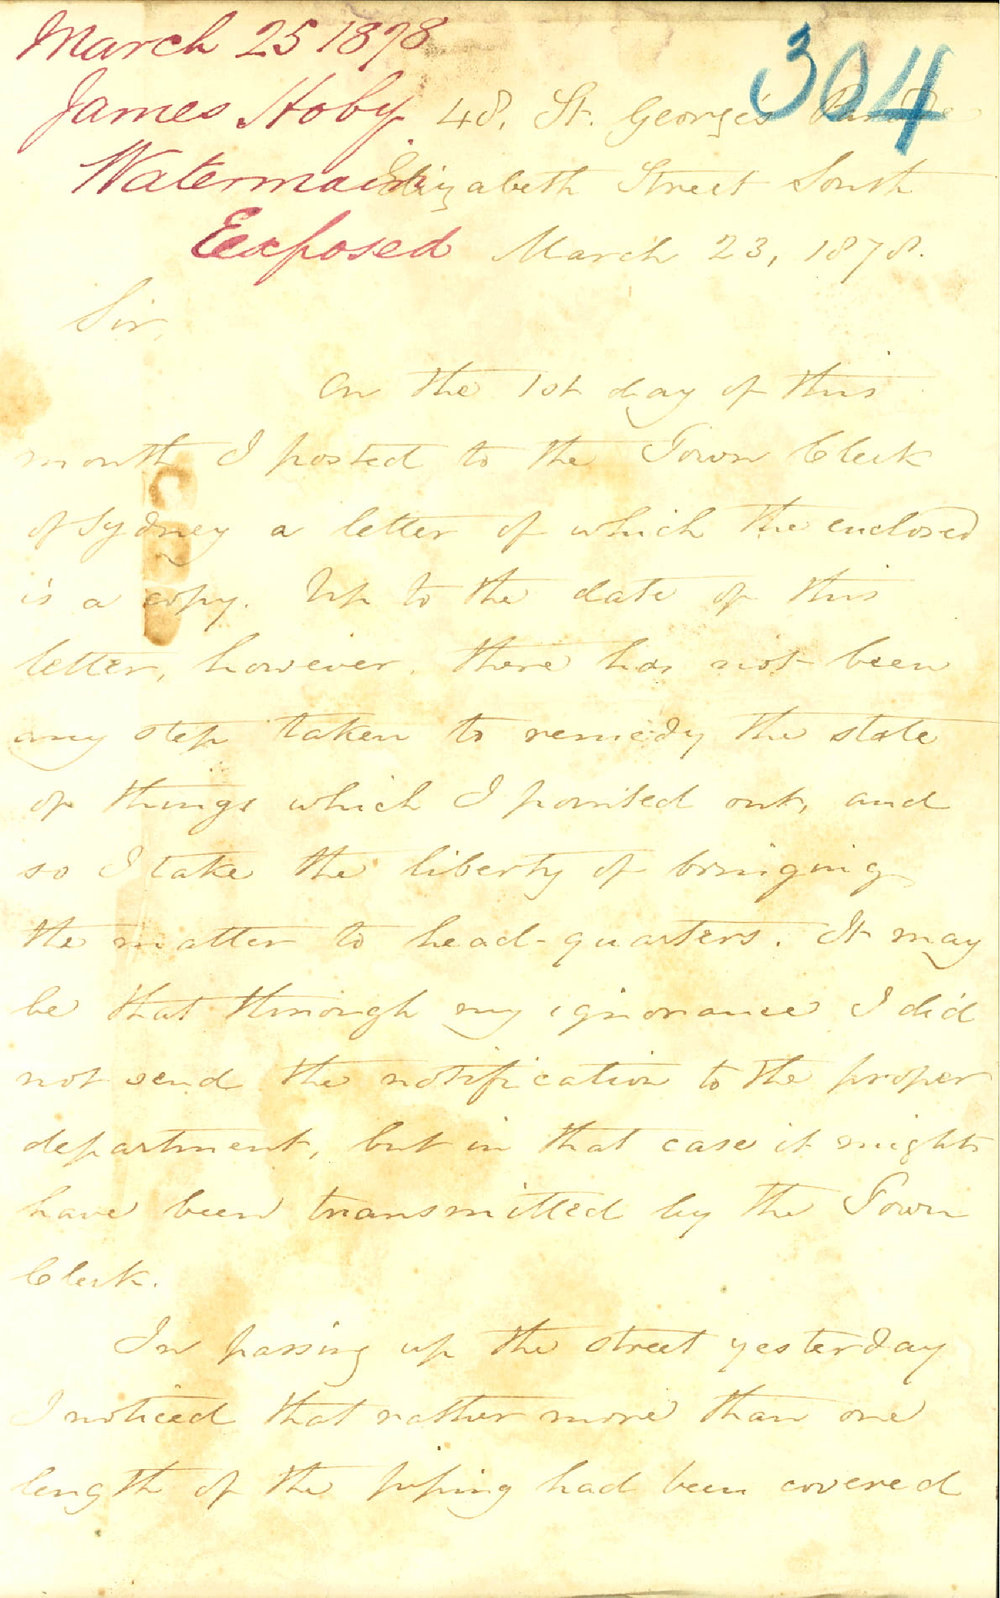 March 25 1878
304
James Hoby
48, St. George's Terrace
Watermain
Elizabeth Street South
Exposed
March 23, 1878.
Sir,
On the 1st day of this
month I posted to the Town Clerk
of Sydney a letter of which the enclosed
is a copy. Up to the date of this
letter, however, there has not been
any step taken to remedy the state
of things which I pointed out, and
so I take the liberty of bringing
the matter to head-quarters. It may
be that through my ignorance I did
not send the notification to the proper
department, but in that case it might
have been transmitted by the Town
Clerk.
In passing up the street yesterday
I noticed that rather more than one
length of the piping had been covered